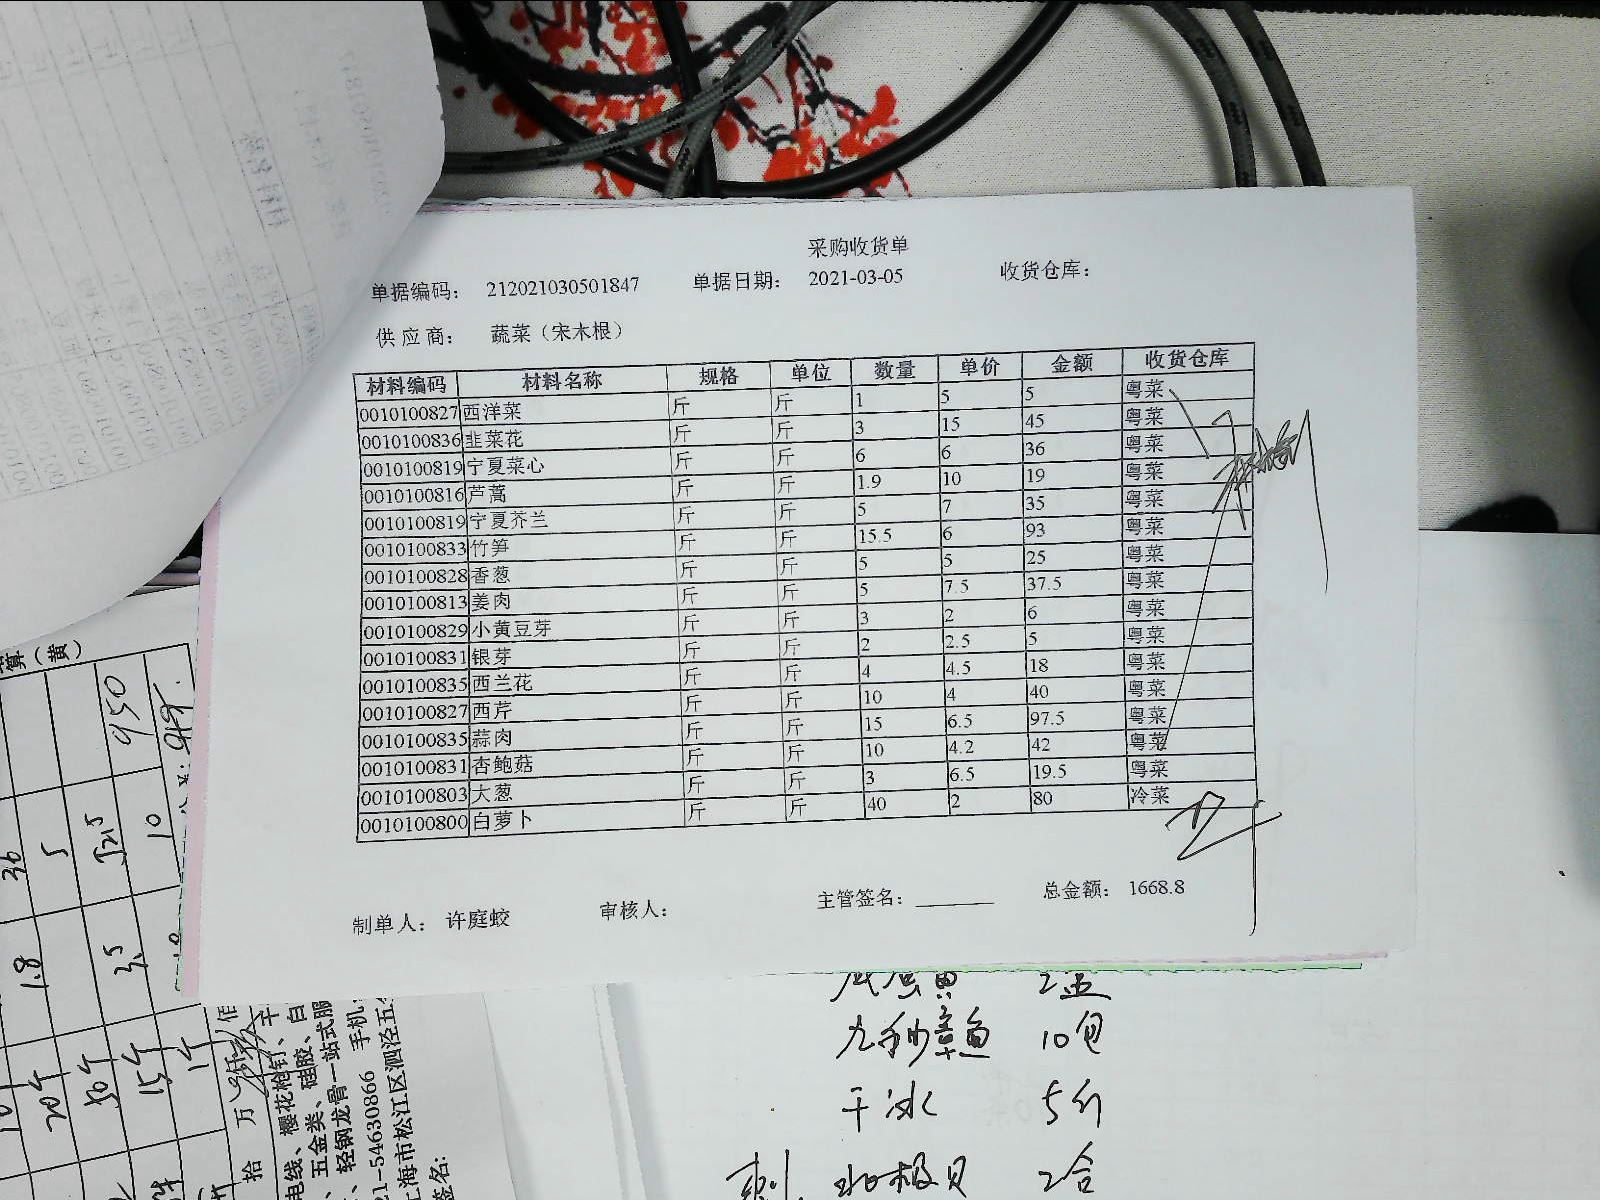 采购收货单
单据编码： 212021030501847 单据日期： 2021-03-05 收货仓库：
供应商： 蔬菜（宋木根）
材料编码 材料名称 规格 单位 数量 单价 金额 收货仓库
0010100827 西洋菜 斤 斤 1 5 5 粤菜
0010100836 韭菜花 斤 斤 3 15 45 粤菜
0010100819 宁夏菜心 斤 斤 6 6 36 粤菜
0010100816 芦蒿 斤 斤 1.9 10 19 粤菜
0010100819 宁夏芥兰 斤 斤 5 7 35 粤菜
0010100833 竹笋 斤 斤 15.5 6 93 粤菜
0010100828 香葱 斤 斤 5 5 25 粤菜
0010100813 姜肉 斤 斤 5 7.5 37.5 粤菜
0010100829 小黄豆芽 斤 斤 3 2 6 粤菜
0010100831 银芽 斤 斤 2 2.5 5 粤菜
0010100835 西兰花 斤 斤 4 4.5 18 粤菜
0010100827 西芹 斤 斤 10 4 40 粤菜
0010100835 蒜肉 斤 斤 15 6.5 97.5 粤菜
0010100831 杏鲍菇 斤 斤 10 4.2 42 粤菜
0010100803 大葱 斤 斤 3 6.5 19.5 粤菜
0010100800 白萝卜 斤 斤 40 2 80 冷菜
制单人： 许庭蛟 审核人： 主管签名： 总金额： 1668.8
九秒章鱼 10包
干冰 5斤
刺 北极贝 2合
算（黄）
36 5 950
5 52.5 10
1.8 3.5
20个 50个 15个 1个
拾 万
电线、樱花枪钉、干
、五金类、硅胶、白
、轻钢龙骨一站式服
21-54630866 手机
上海市松江区泗泾五金
签名：